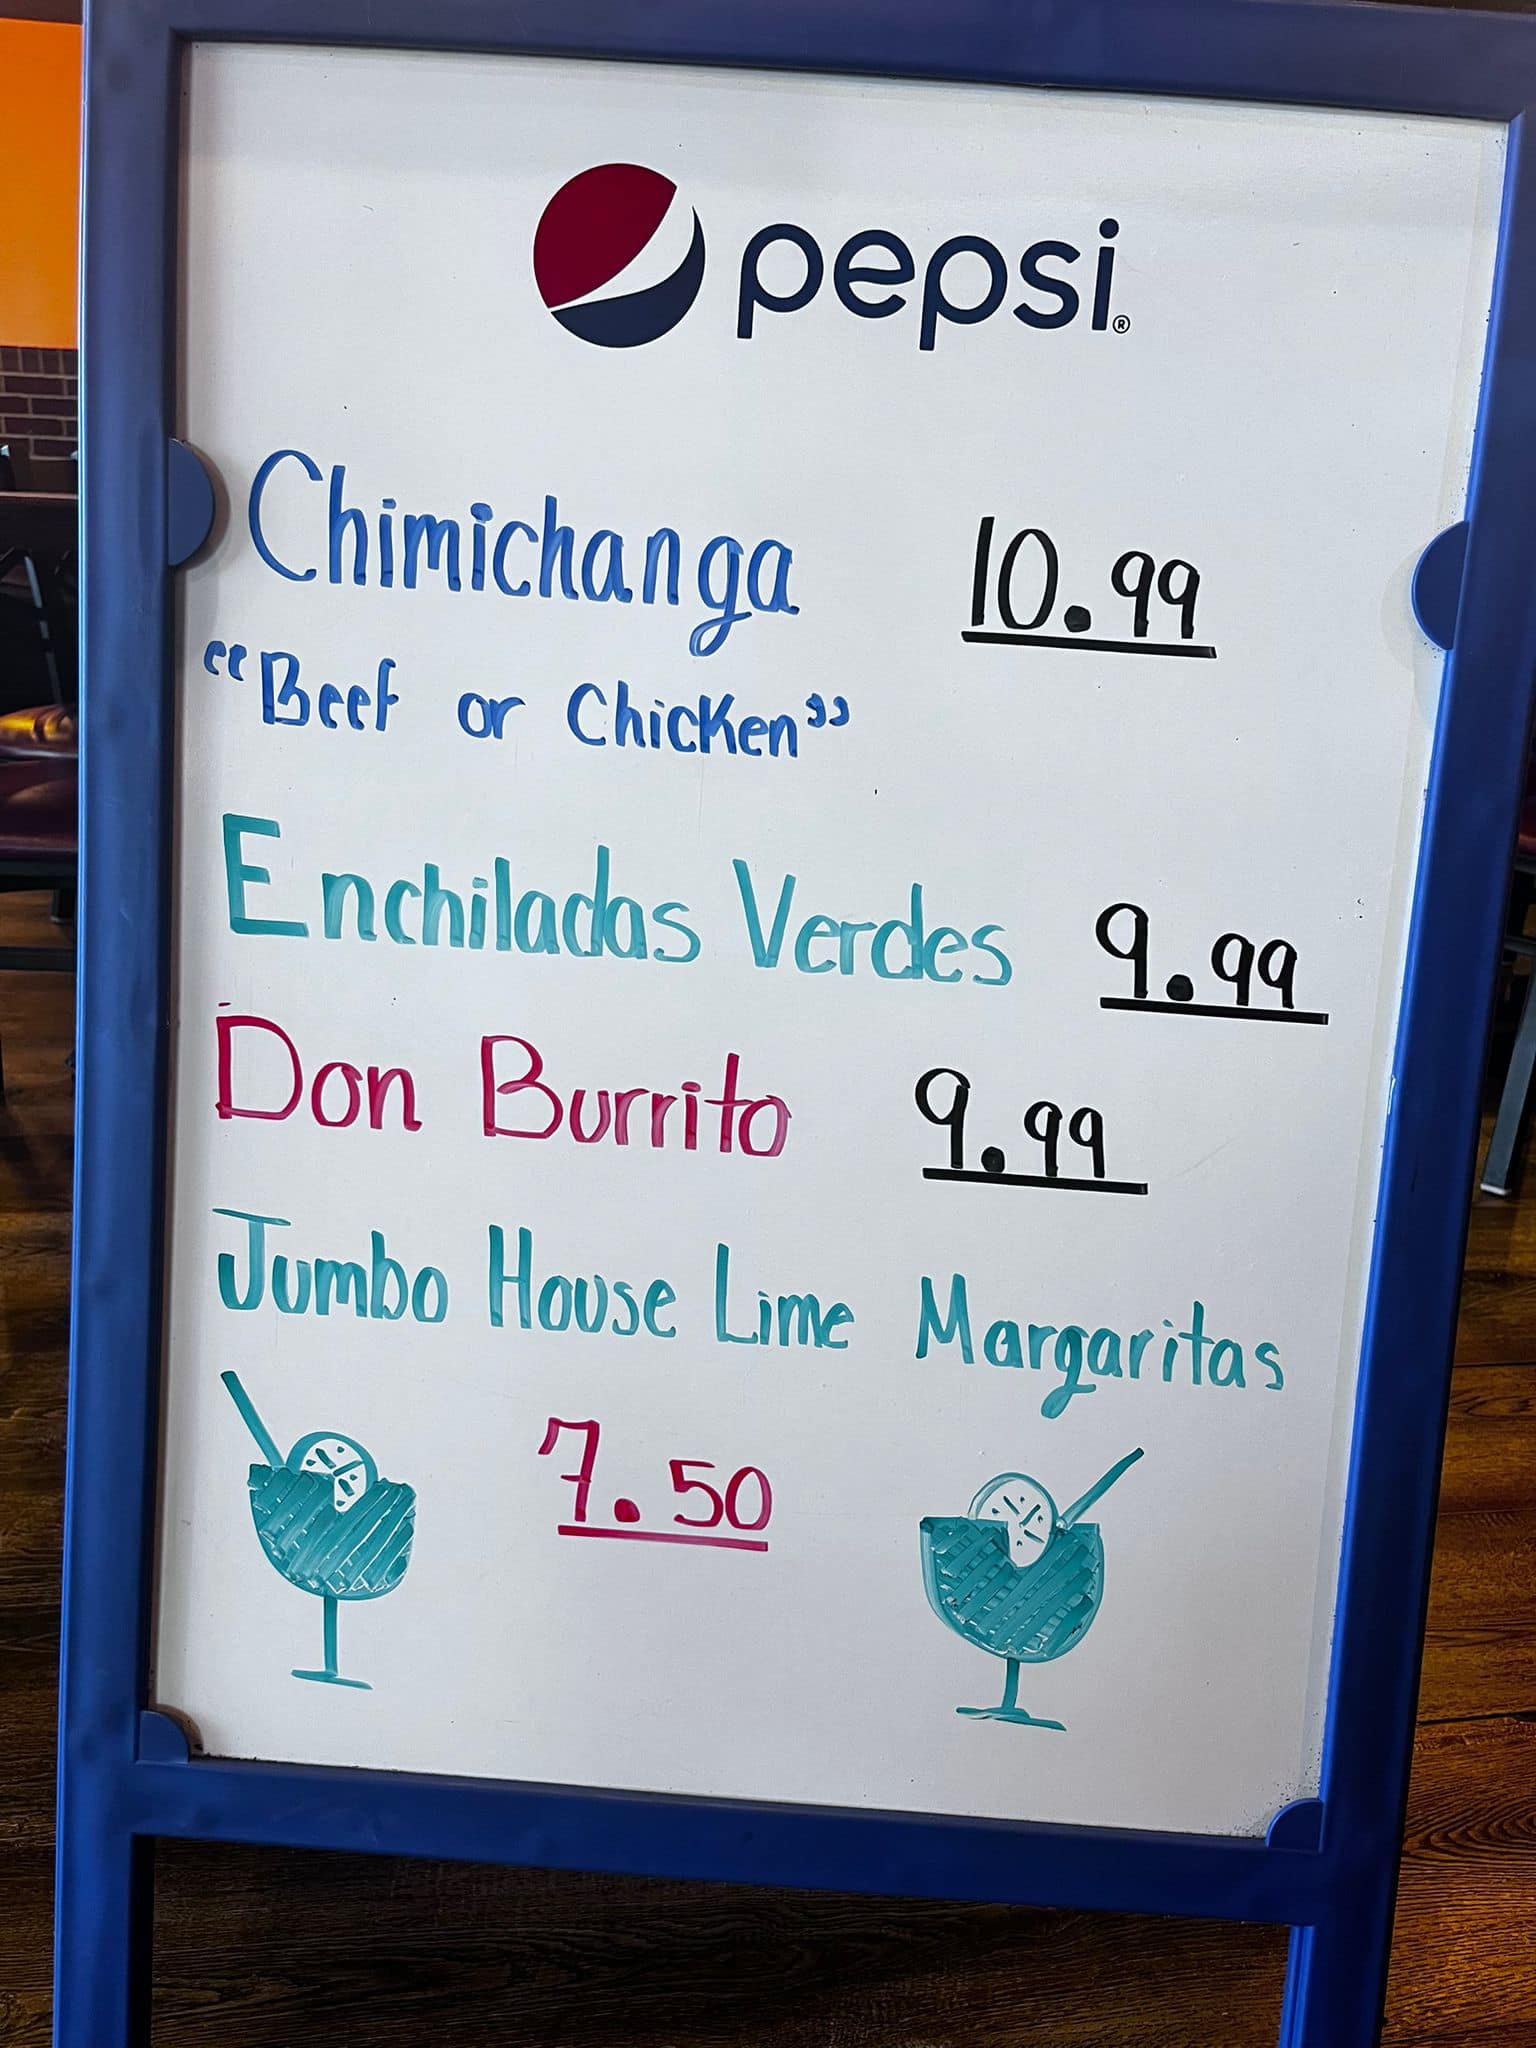 pepsi®
Chimichanga 10.99
“Beef or Chicken”
Enchiladas Verdes 9.99
Don Burrito 9.99
Jumbo House Lime Margaritas
7.50